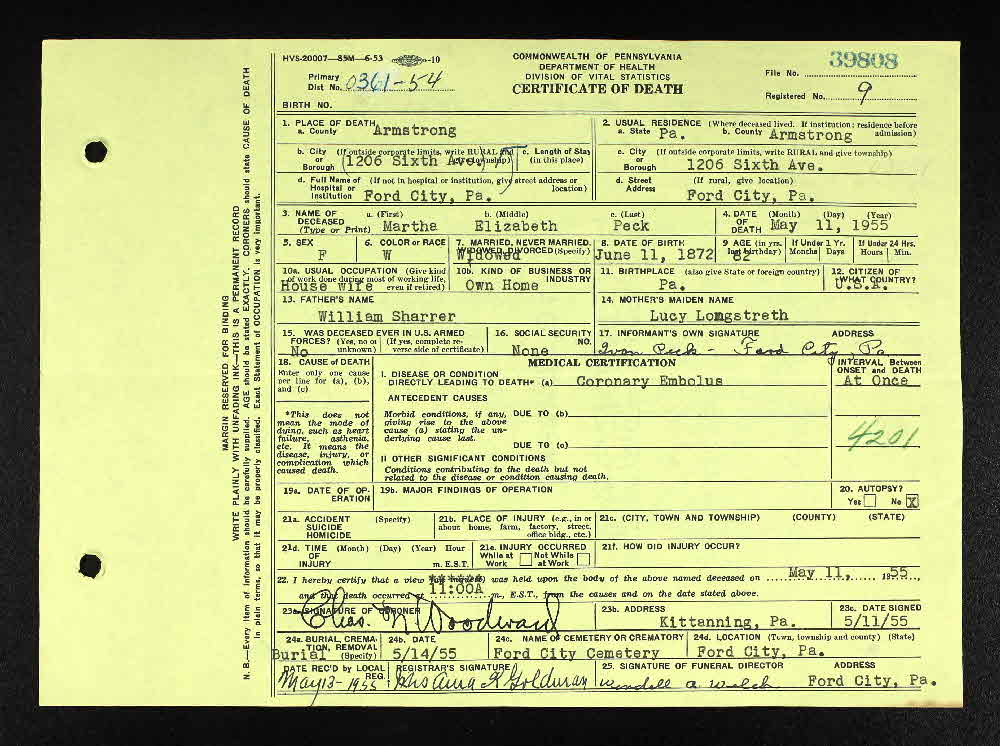 HVS-20007—85M—6-53 -10
COMMONWEALTH OF PENNSYLVANIA
DEPARTMENT OF HEALTH
DIVISION OF VITAL STATISTICS
CERTIFICATE OF DEATH
Primary Dist. No. 0361-54
File No. 39808
Registered No. 9
BIRTH NO.
1. PLACE OF DEATH
a. County Armstrong
2. USUAL RESIDENCE (Where deceased lived. If institution: residence before admission)
a. State Pa. b. County Armstrong
b. City or Borough (If outside corporate limits, write RURAL and give township) 1206 Sixth Ave.
c. Length of Stay (in this place)
c. City or Borough (If outside corporate limits, write RURAL and give township)
1206 Sixth Ave.
d. Full Name of Hospital or Institution (If not in hospital or institution, give street address or location)
Ford City, Pa.
d. Street Address (If rural, give location)
Ford City, Pa.
3. NAME OF DECEASED (Type or Print)
a. (First) b. (Middle) c. (Last)
Martha Elizabeth Peck
4. DATE OF DEATH (Month) (Day) (Year)
May 11, 1955
5. SEX
F
6. COLOR or RACE
W
7. MARRIED, NEVER MARRIED, WIDOWED, DIVORCED (Specify)
Widowed
8. DATE OF BIRTH
June 11, 1872
9 AGE (in yrs. last birthday)
82
If Under 1 Yr. Months Days
If Under 24 Hrs. Hours Min.
10a. USUAL OCCUPATION (Give kind of work done during most of working life, even if retired)
House wife
10b. KIND OF BUSINESS OR INDUSTRY
Own Home
11. BIRTHPLACE (also give State or foreign country)
Pa.
12. CITIZEN OF WHAT COUNTRY?
U.S.A.
13. FATHER'S NAME
William Sharrer
14. MOTHER'S MAIDEN NAME
Lucy Lomgstreth
15. WAS DECEASED EVER IN U.S. ARMED FORCES? (Yes, no or unknown) (If yes, complete reverse side of certificate)
No
16. SOCIAL SECURITY NO.
None
17. INFORMANT'S OWN SIGNATURE ADDRESS
Ivan Peck - Ford City Pa
18. CAUSE OF DEATH
Enter only one cause per line for (a), (b), and (c)
MEDICAL CERTIFICATION
I. DISEASE OR CONDITION
DIRECTLY LEADING TO DEATH* (a) Coronary Embolus
INTERVAL Between ONSET and DEATH
At Once
ANTECEDENT CAUSES
*This does not mean the mode of dying, such as heart failure, asthenia, etc. It means the disease, injury, or complication which caused death.
Morbid conditions, if any, giving rise to the above cause (a) stating the underlying cause last.
DUE TO (b)
DUE TO (c)
4201
II OTHER SIGNIFICANT CONDITIONS
Conditions contributing to the death but not related to the disease or condition causing death.
19a. DATE OF OPERATION
19b. MAJOR FINDINGS OF OPERATION
20. AUTOPSY?
Yes No X
21a. ACCIDENT SUICIDE HOMICIDE (Specify)
21b. PLACE OF INJURY (e.g., in or about home, farm, factory, street, office bldg., etc.)
21c. (CITY, TOWN AND TOWNSHIP) (COUNTY) (STATE)
21d. TIME OF INJURY (Month) (Day) (Year) Hour m. E.S.T.
21e. INJURY OCCURRED
While at Work Not While at Work
21f. HOW DID INJURY OCCUR?
22. I hereby certify that a view was held upon the body of the above named deceased on May 11, 1955,
and that death occurred at 11:00A m., E.S.T., from the causes and on the date stated above.
23a. SIGNATURE OF CORONER
Chas. N Woodward
23b. ADDRESS
Kittanning, Pa.
23c. DATE SIGNED
5/11/55
24a. BURIAL, CREMATION, REMOVAL (Specify)
Burial
24b. DATE
5/14/55
24c. NAME OF CEMETERY OR CREMATORY
Ford City Cemetery
24d. LOCATION (Town, township and county) (State)
Ford City, Pa.
DATE REC'D by LOCAL REG.
May 13-1955
REGISTRAR'S SIGNATURE
Mrs Anna K Goldman
25. SIGNATURE OF FUNERAL DIRECTOR ADDRESS
Wendell a. Welch Ford City, Pa.
MARGIN RESERVED FOR BINDING
WRITE PLAINLY WITH UNFADING INK—THIS IS A PERMANENT RECORD
N. B.—Every item of information should be carefully supplied. AGE should be stated EXACTLY. CORONERS should state CAUSE OF DEATH
in plain terms, so that it may be properly classified. Exact Statement of OCCUPATION is very important.